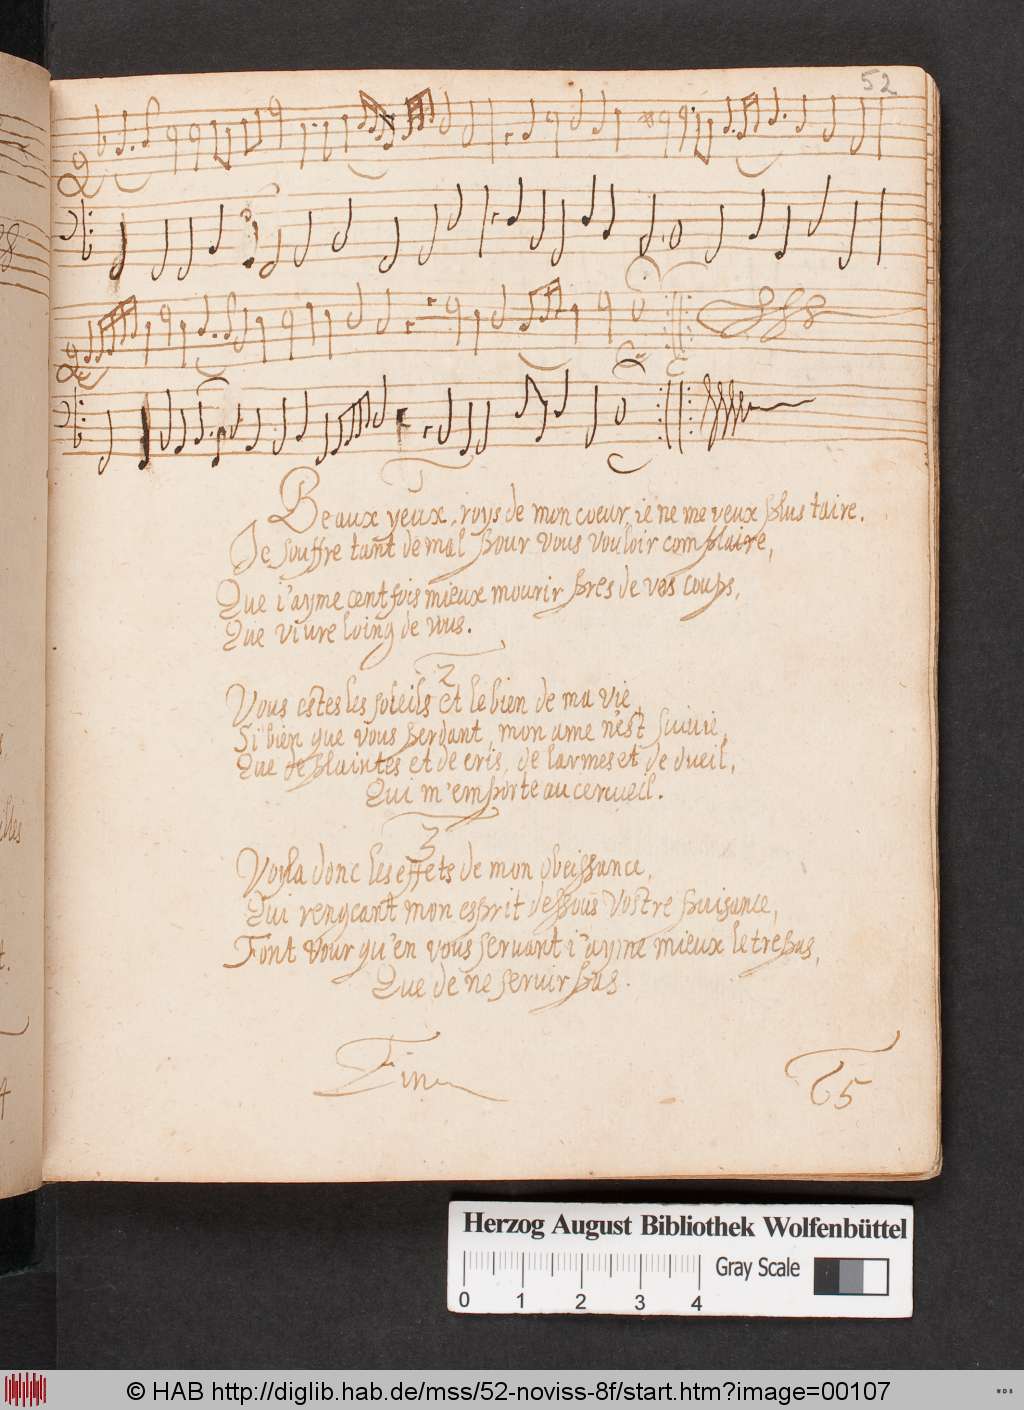 52
Beaux yeux, roys de mon coeur, ie ne me veux plus taire.
Je souffre tant de mal pour vous vouloir complaire,
Que i'ayme cent fois mieux mourir pres de vos coups,
Que viure loing de vous.
2
Vous estes les soleils et le bien de ma vie,
Si bien que vous perdant, mon ame n'est suiuie,
Que de plaintes et de cris, de larmes et de dueil,
Qui m'emporte au cerueil.
3
Voyla donc les effets de mon obeissance,
Qui rengeant mon esprit dessous vostre puisance,
Font vour qu'en vous seruant i'ayme mieux le trespas,
Que de ne seruir pas.
Fin
5
Herzog August Bibliothek Wolfenbüttel
Gray Scale
0 1 2 3 4
© HAB http://diglib.hab.de/mss/52-noviss-8f/start.htm?image=00107